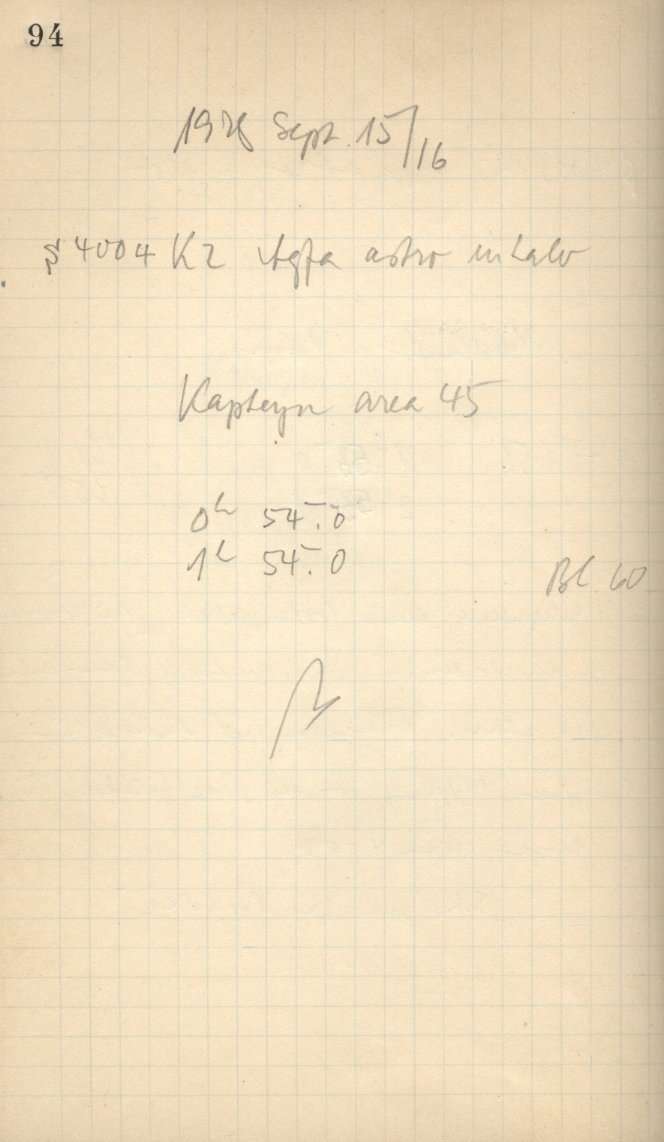 94
1928 Sept. 15/16
S 4004 K2 Agfa astro unhalo
Kapteyn area 45
0h 54.0
1h 54.0
Bl. 60